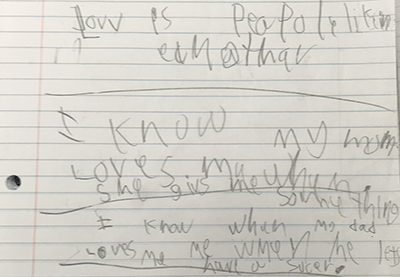 Love is Peapol likin
eachathar
I know my mom
Loves me when
she givs me something
I know when my dad
Loves me me when he lets
have a sucer.